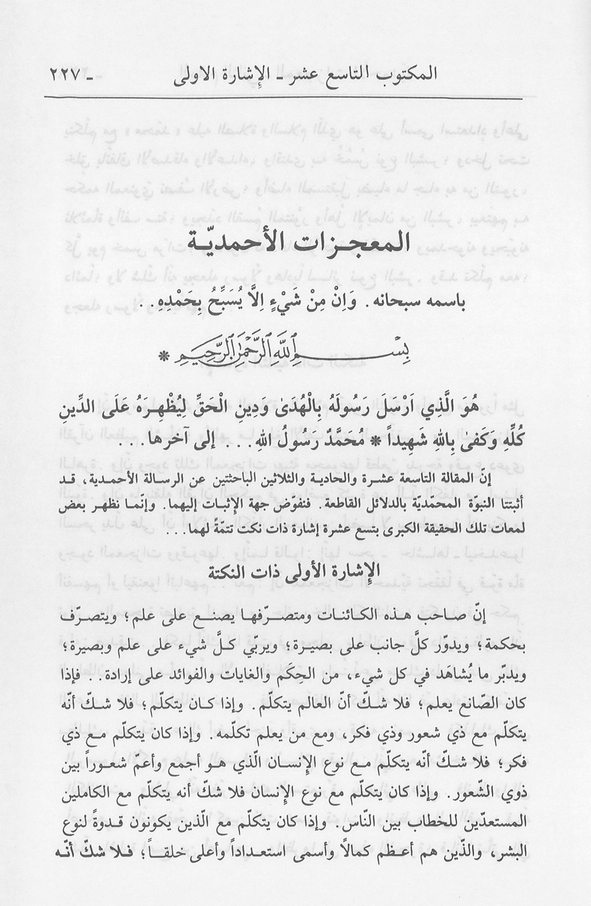 المكتوب التاسع عشر ـ الإشارة الاولى
ـ ٢٢٧
المعجـزات الأحمديّـة
باسمه سبحانه. وَاِنْ مِنْ شَيْءٍ اِلَّا يُسَبِّحُ بِحَمْدِهِ..
بِسْــــمِ اللَّهِ الرَّحْمَٰنِ الرَّحِيمِ *
هُوَ الَّذِي اَرْسَلَ رَسُولَهُ بِالْهُدَىٰ وَدِينِ الْحَقِّ لِيُظْهِـرَهُ عَلَى الدِّينِ
كُلِّهِ وَكَفىٰ بِاللهِ شَهِيداً * مُحَمَّدٌ رَسُولُ اللهِ.... إلى آخرها...
إنّ المقالة التاسعة عشـرة والحادية والثلاثين الباحثتين عن الرسـالة الأحمدية، قـد
أثبتتا النبوّة المحمّديّة بالدلائل القاطعة. فنفوّض جهة الإثبات إليهما. وإنّمـا نظهر بعض
لمعات تلك الحقيقة الكبرى بتسع عشرة إشارة ذات نكت تتمّةً لهما...
الإشارة الأولى ذات النكتة
إنّ صاحب هـذه الكـائنـات ومتصـرّفهـا يصنـع على علم؛ ويتصـرّف
بحكمة؛ ويدوّر كلّ جانب على بصيرة؛ ويربّي كـلّ شيء على علم وبصيرة؛
ويدبّر ما يُشاهَد في كل شيء، من الحِكَم والغايات والفوائد على إرادة.. فإذا
كان الصّانع يعلم؛ فلا شـكّ أنّ العالم يتكلّم. وإذا كـان يتكلّم؛ فلا شـكّ أنه
يتكلّم مع ذي شعور وذي فكر، ومع من يعلم تكلّمه. وإذا كان يتكلّم مـع ذي
فكر؛ فلا شـكّ أنه يتكلّم مع نوع الإنسان الّذي هـو أجمع وأعمّ شعـوراً بين
ذوي الشّعور. وإذا كان يتكلّم مع نوع الإنسان فلا شكّ أنه يتكلّم مع الكاملين
المستعدّين للخطاب بين النّاس. وإذا كان يتكلّم مع الّذين يكونون قـدوة لنوع
البشر، والّذين هم أعـظم كمالًا وأسمى استعـداداً وأعلى خلقـاً؛ فـلا شكّ أنّـه